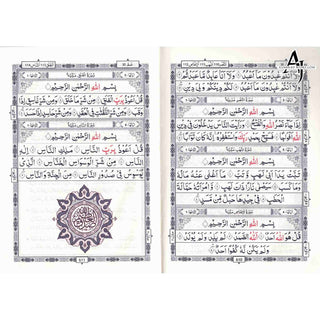 عَٰبِدُونَ مَا أَعْبُدُ وَلَا أَنَا عَابِدٌ مَا عَبَدتُّمْ
وَلَا أَنتُمْ عَٰبِدُونَ مَا أَعْبُدُ لَكُمْ دِينُكُمْ وَلِيَ دِينِ
بِسْمِ اللهِ الرَّحْمَٰنِ الرَّحِيمِ
إِذَا جَاءَ نَصْرُ اللهِ وَالْفَتْحُ وَرَأَيْتَ النَّاسَ يَدْخُلُونَ فِي دِينِ
اللهِ أَفْوَاجًا فَسَبِّحْ بِحَمْدِ رَبِّكَ وَاسْتَغْفِرْهُ إِنَّهُ كَانَ تَوَّابًا
بِسْمِ اللهِ الرَّحْمَٰنِ الرَّحِيمِ
تَبَّتْ يَدَا أَبِي لَهَبٍ وَتَبَّ مَا أَغْنَىٰ عَنْهُ مَالُهُ
وَمَا كَسَبَ سَيَصْلَىٰ نَارًا ذَاتَ لَهَبٍ وَامْرَأَتُهُ حَمَّالَةَ
الْحَطَبِ فِي جِيدِهَا حَبْلٌ مِّن مَّسَدٍ
بِسْمِ اللهِ الرَّحْمَٰنِ الرَّحِيمِ
قُلْ هُوَ اللهُ أَحَدٌ اللهُ الصَّمَدُ لَمْ يَلِدْ وَلَمْ يُولَدْ
وَلَمْ يَكُن لَّهُ كُفُوًا أَحَدٌ
بِسْمِ اللهِ الرَّحْمَٰنِ الرَّحِيمِ
قُلْ أَعُوذُ بِرَبِّ الْفَلَقِ مِن شَرِّ مَا خَلَقَ وَمِن شَرِّ غَاسِقٍ إِذَا
وَقَبَ وَمِن شَرِّ النَّفَّٰثَٰتِ فِي الْعُقَدِ وَمِن شَرِّ حَاسِدٍ إِذَا حَسَدَ
بِسْمِ اللهِ الرَّحْمَٰنِ الرَّحِيمِ
قُلْ أَعُوذُ بِرَبِّ النَّاسِ مَلِكِ النَّاسِ
إِلَٰهِ النَّاسِ مِن شَرِّ الْوَسْوَاسِ الْخَنَّاسِ الَّذِي
يُوَسْوِسُ فِي صُدُورِ النَّاسِ مِنَ الْجِنَّةِ وَالنَّاسِ